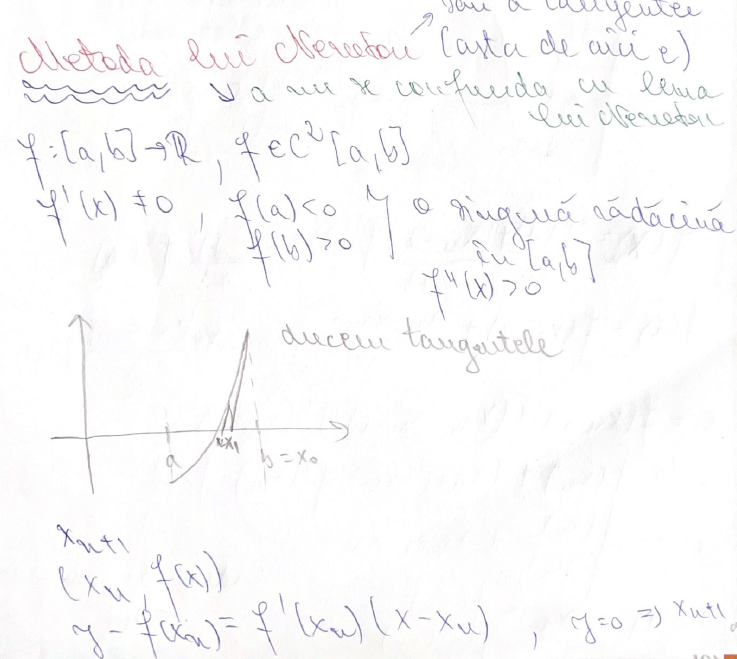 sau a tangentei
Metoda lui Newton (asta de aici e)
↳ a nu se confunda cu lema
lui Newton
f : [a,b] → ℝ , f ∈ C² [a,b]
f'(x) ≠ 0 , f(a) < 0 } o singură rădăcină
f(b) > 0 în [a,b]
f''(x) > 0
ducem tangentele
a x₁ b = x₀
xₙ₊₁
(xₙ, f(x))
y - f(xₙ) = f'(xₙ) (x - xₙ) , y = 0 ⇒ xₙ₊₁